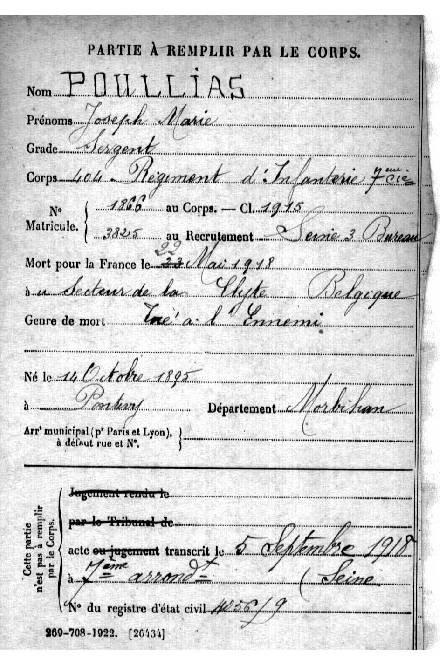 PARTIE À REMPLIR PAR LE CORPS.
Nom POULLIAS
Prénoms Joseph Marie
Grade Sergent
Corps 404. Régiment d'Infanterie 7eme cie
N° Matricule. { 1866 au Corps. — Cl. 1915
3825 au Recrutement Seine 3 Bureau
Mort pour la France le 22 Mai 1918
à u Secteur de la Clyte Belgique
Genre de mort Tué à l'Ennemi
Né le 14 Octobre 1895
à Pontivy Département Morbihan
Arrt municipal (pr Paris et Lyon),
à défaut rue et N°.
Cette partie n'est pas à remplir par le Corps.
Jugement rendu le
par le Tribunal de
acte ou jugement transcrit le 5 Septembre 1918
à 7eme arrondt (Seine
N° du registre d'état civil
269-708-1922. [26434]